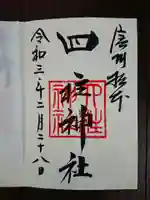 信州松本
四柱神社
令和三年二月二十八日